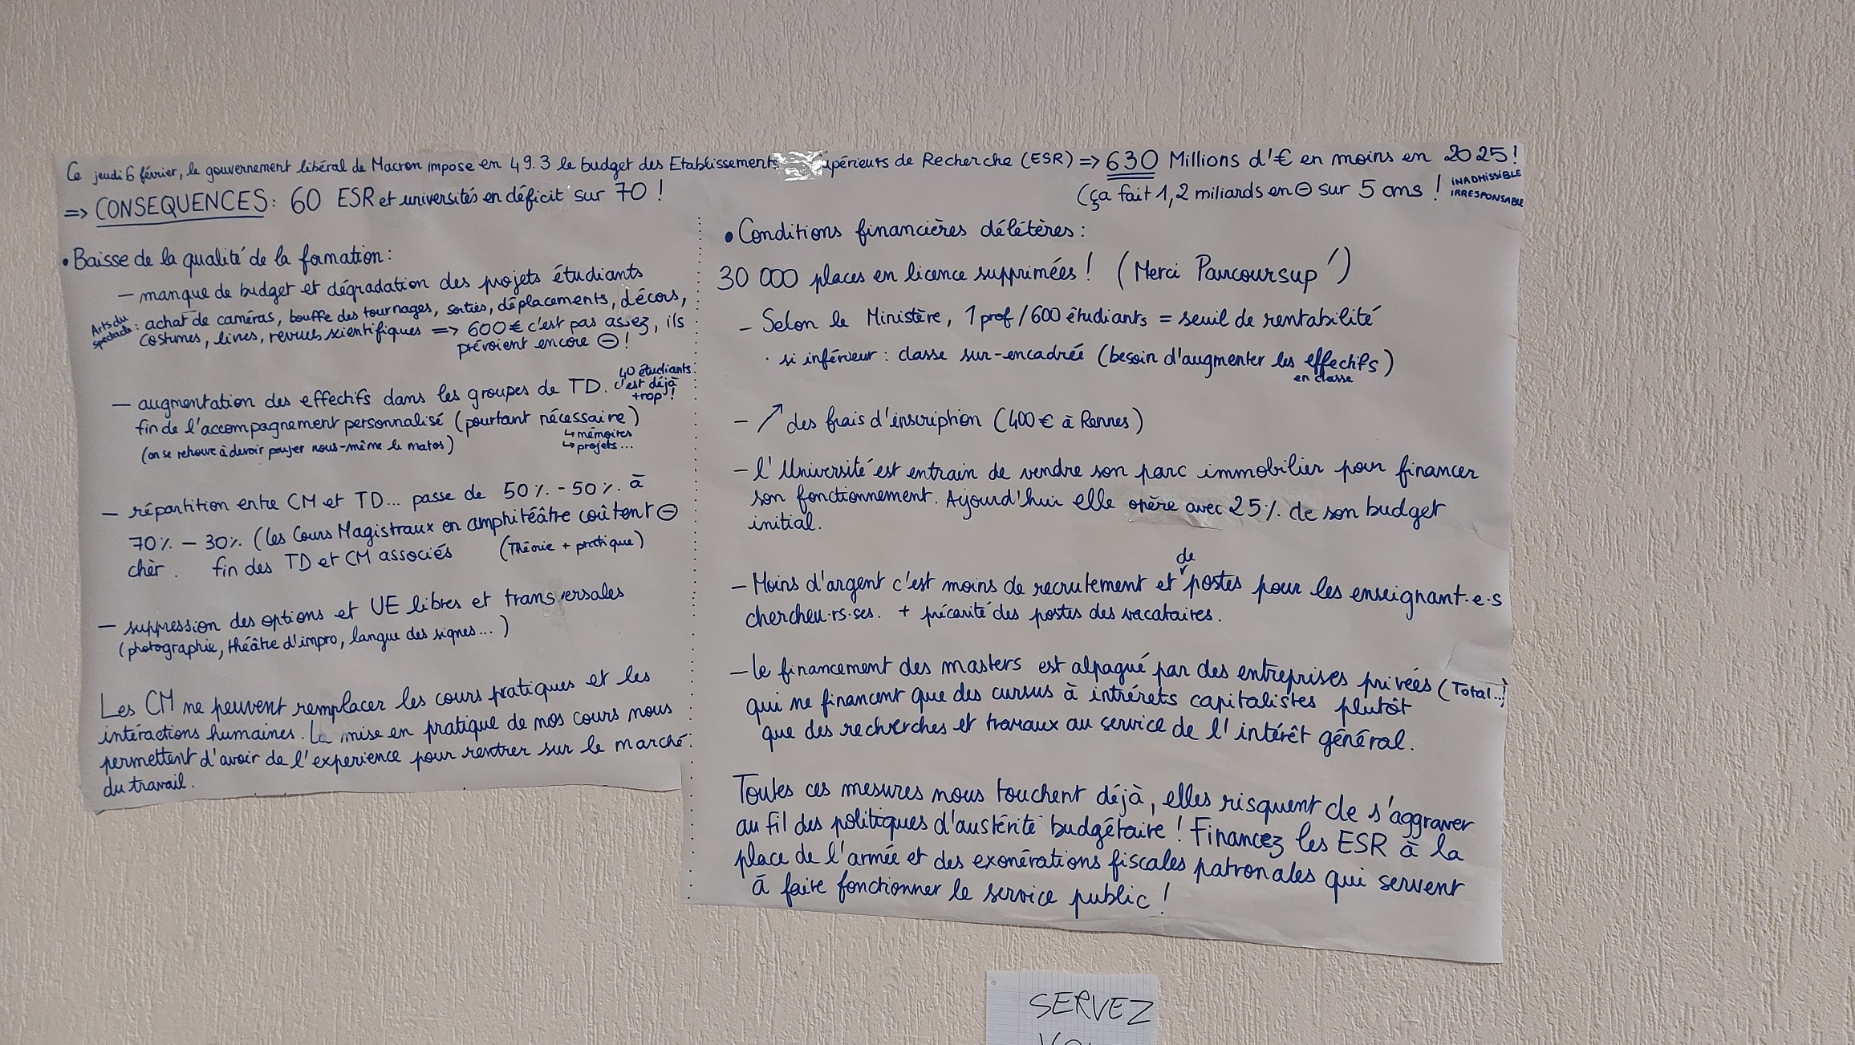 Ce jeudi 6 février, le gouvernement libéral de Macron impose en 49.3 le budget des Etablissements upérieurs de Recherche (ESR) => 630 Millions d'€ en moins en 2025!
(ça fait 1,2 miliards en ⊖ sur 5 ans ! INADMISSIBLE
IRRESPONSABLE
=> CONSEQUENCES: 60 ESR et universités en déficit sur 70 !
• Baisse de la qualité de la formation:
— manque de budget et dégradation des projets étudiants
Arts du
spectacle : achat de caméras, bouffe des tournages, sorties, déplacements, décors,
costumes, livres, revues scientifiques => 600€ c'est pas assez, ils
prévoient encore ⊖ !
— augmentation des effectifs dans les groupes de TD. 40 étudiants
c'est déjà
trop !
fin de l'accompagnement personnalisé (pourtant nécessaire)
↳ mémoires
↳ projets...
(on se retrouve à devoir payer nous-même le matos)
— répartition entre CM et TD... passe de 50% - 50% à
70% - 30% (les Cours Magistraux en amphitéâtre coûtent ⊖
chèr. fin des TD et CM associés (Théorie + pratique)
— suppression des options et UE libres et transversales
(photographie, théâtre d'impro, langue des signes...)
Les CM ne peuvent remplacer les cours pratiques et les
intéractions humaines. La mise en pratique de nos cours nous
permettent d'avoir de l'experience pour rentrer sur le marché
du travail.
• Conditions financières délétères:
30 000 places en licence supprimées ! (Merci Parcoursup')
- Selon le Ministère, 1 prof/600 étudiants = seuil de rentabilité
· si inférieur : classe sur-encadrée (besoin d'augmenter les effectifs)
en classe
- ↗ des frais d'inscription (400€ à Rennes)
- l'Université est entrain de vendre son parc immobilier pour financer
son fonctionnement. Ajourd'hui elle opère avec 25% de son budget
initial.
- Moins d'argent c'est moins de recrutement et de postes pour les enseignant·e·s
chercheu·rs·ses. + précarité des postes des vacataires.
- le financement des masters est alpagué par des entreprises privées (Total...)
qui ne financent que des cursus à intérêts capitalistes plutôt
que des recherches et travaux au service de l'intérêt général.
Toutes ces mesures nous touchent déjà, elles risquent de s'aggraver
au fil des politiques d'austérité budgétaire ! Financez les ESR à la
place de l'armée et des exonérations fiscales patronales qui servent
à faire fonctionner le service public !
SERVEZ